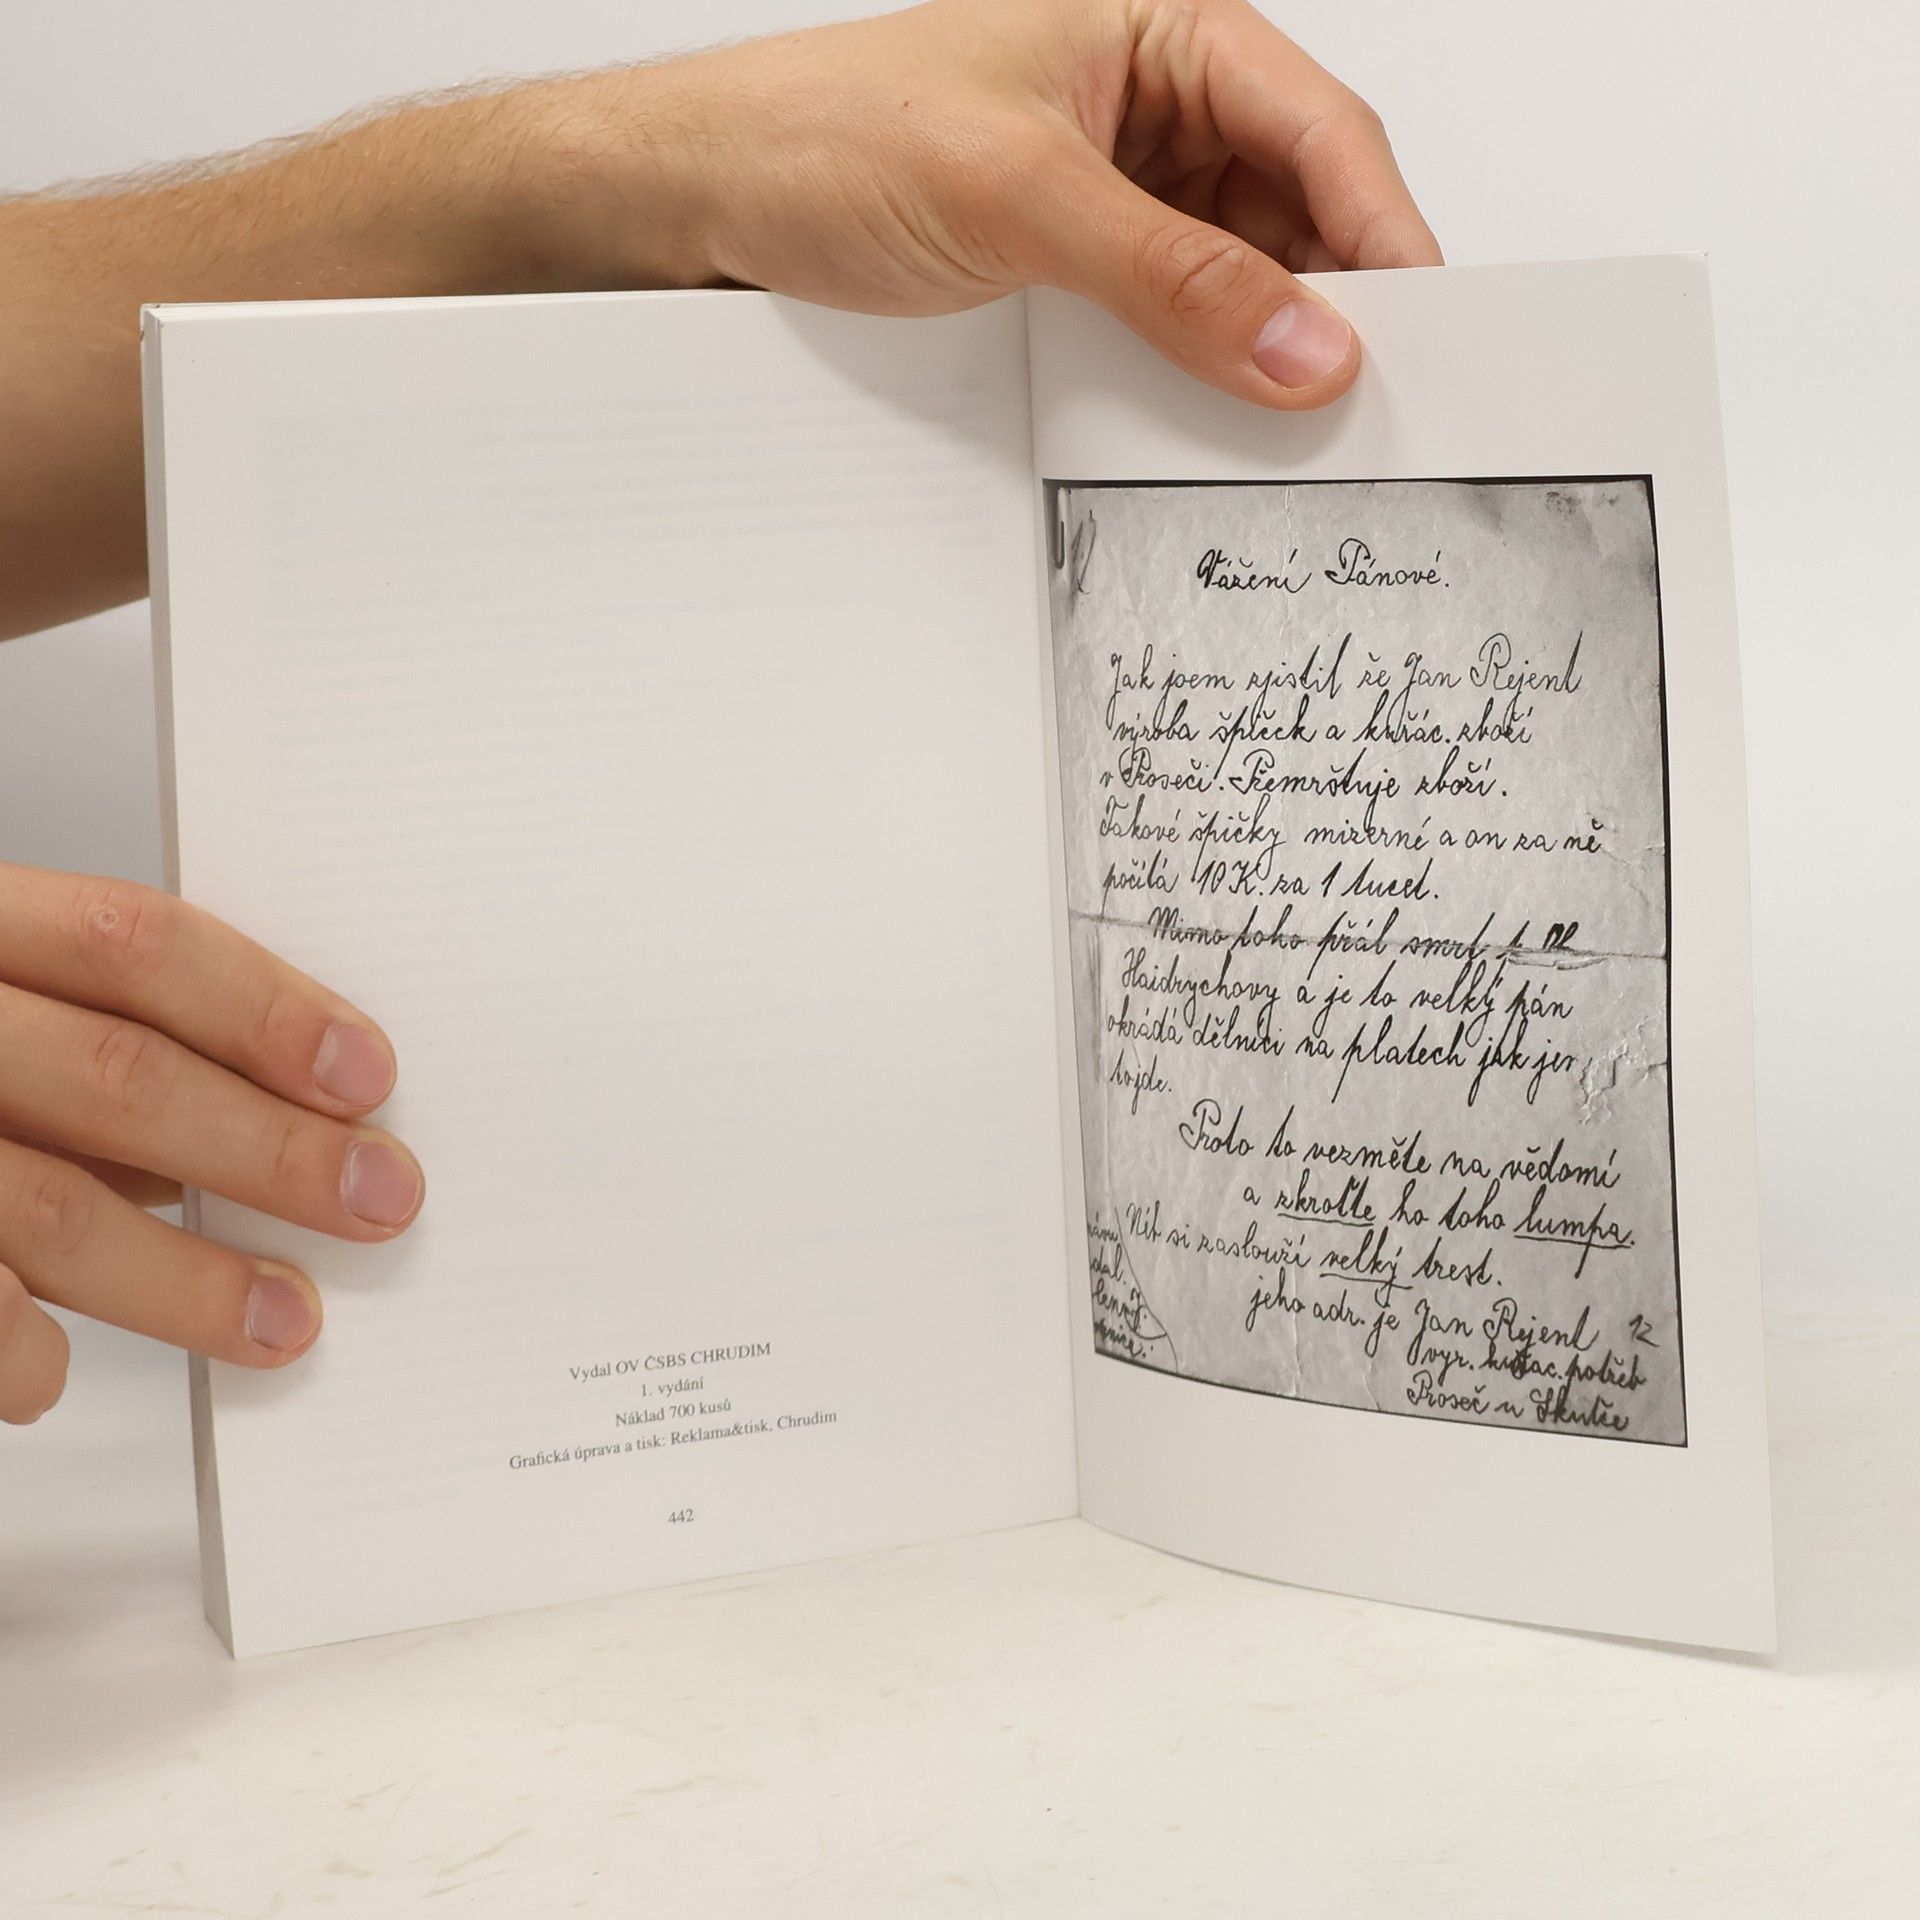 Vydal OV ČSBS CHRUDIM
1. vydání
Náklad 700 kusů
Grafická úprava a tisk: Reklama&tisk, Chrudim
442
Vážení Pánové.
Jak jsem zjistil že Jan Rejent
výroba špiček a kuřác. zboží
v Proseči. Přemrštuje zboží.
Takové špičky mizerné a on za ně
počítá 10 K. za 1 tucet.
Mimo toho přál smrt
Haidrychovy a je to velký pán
okrádá dělníci na platech jak jen
tojde.
Proto to vezměte na vědomí
a zkroťte ho toho lumpa.
Nít si zaslouží velký trest.
jeho adr. je Jan Rejent 12
vyr. kuřac. potřeb
Proseč u Skutče